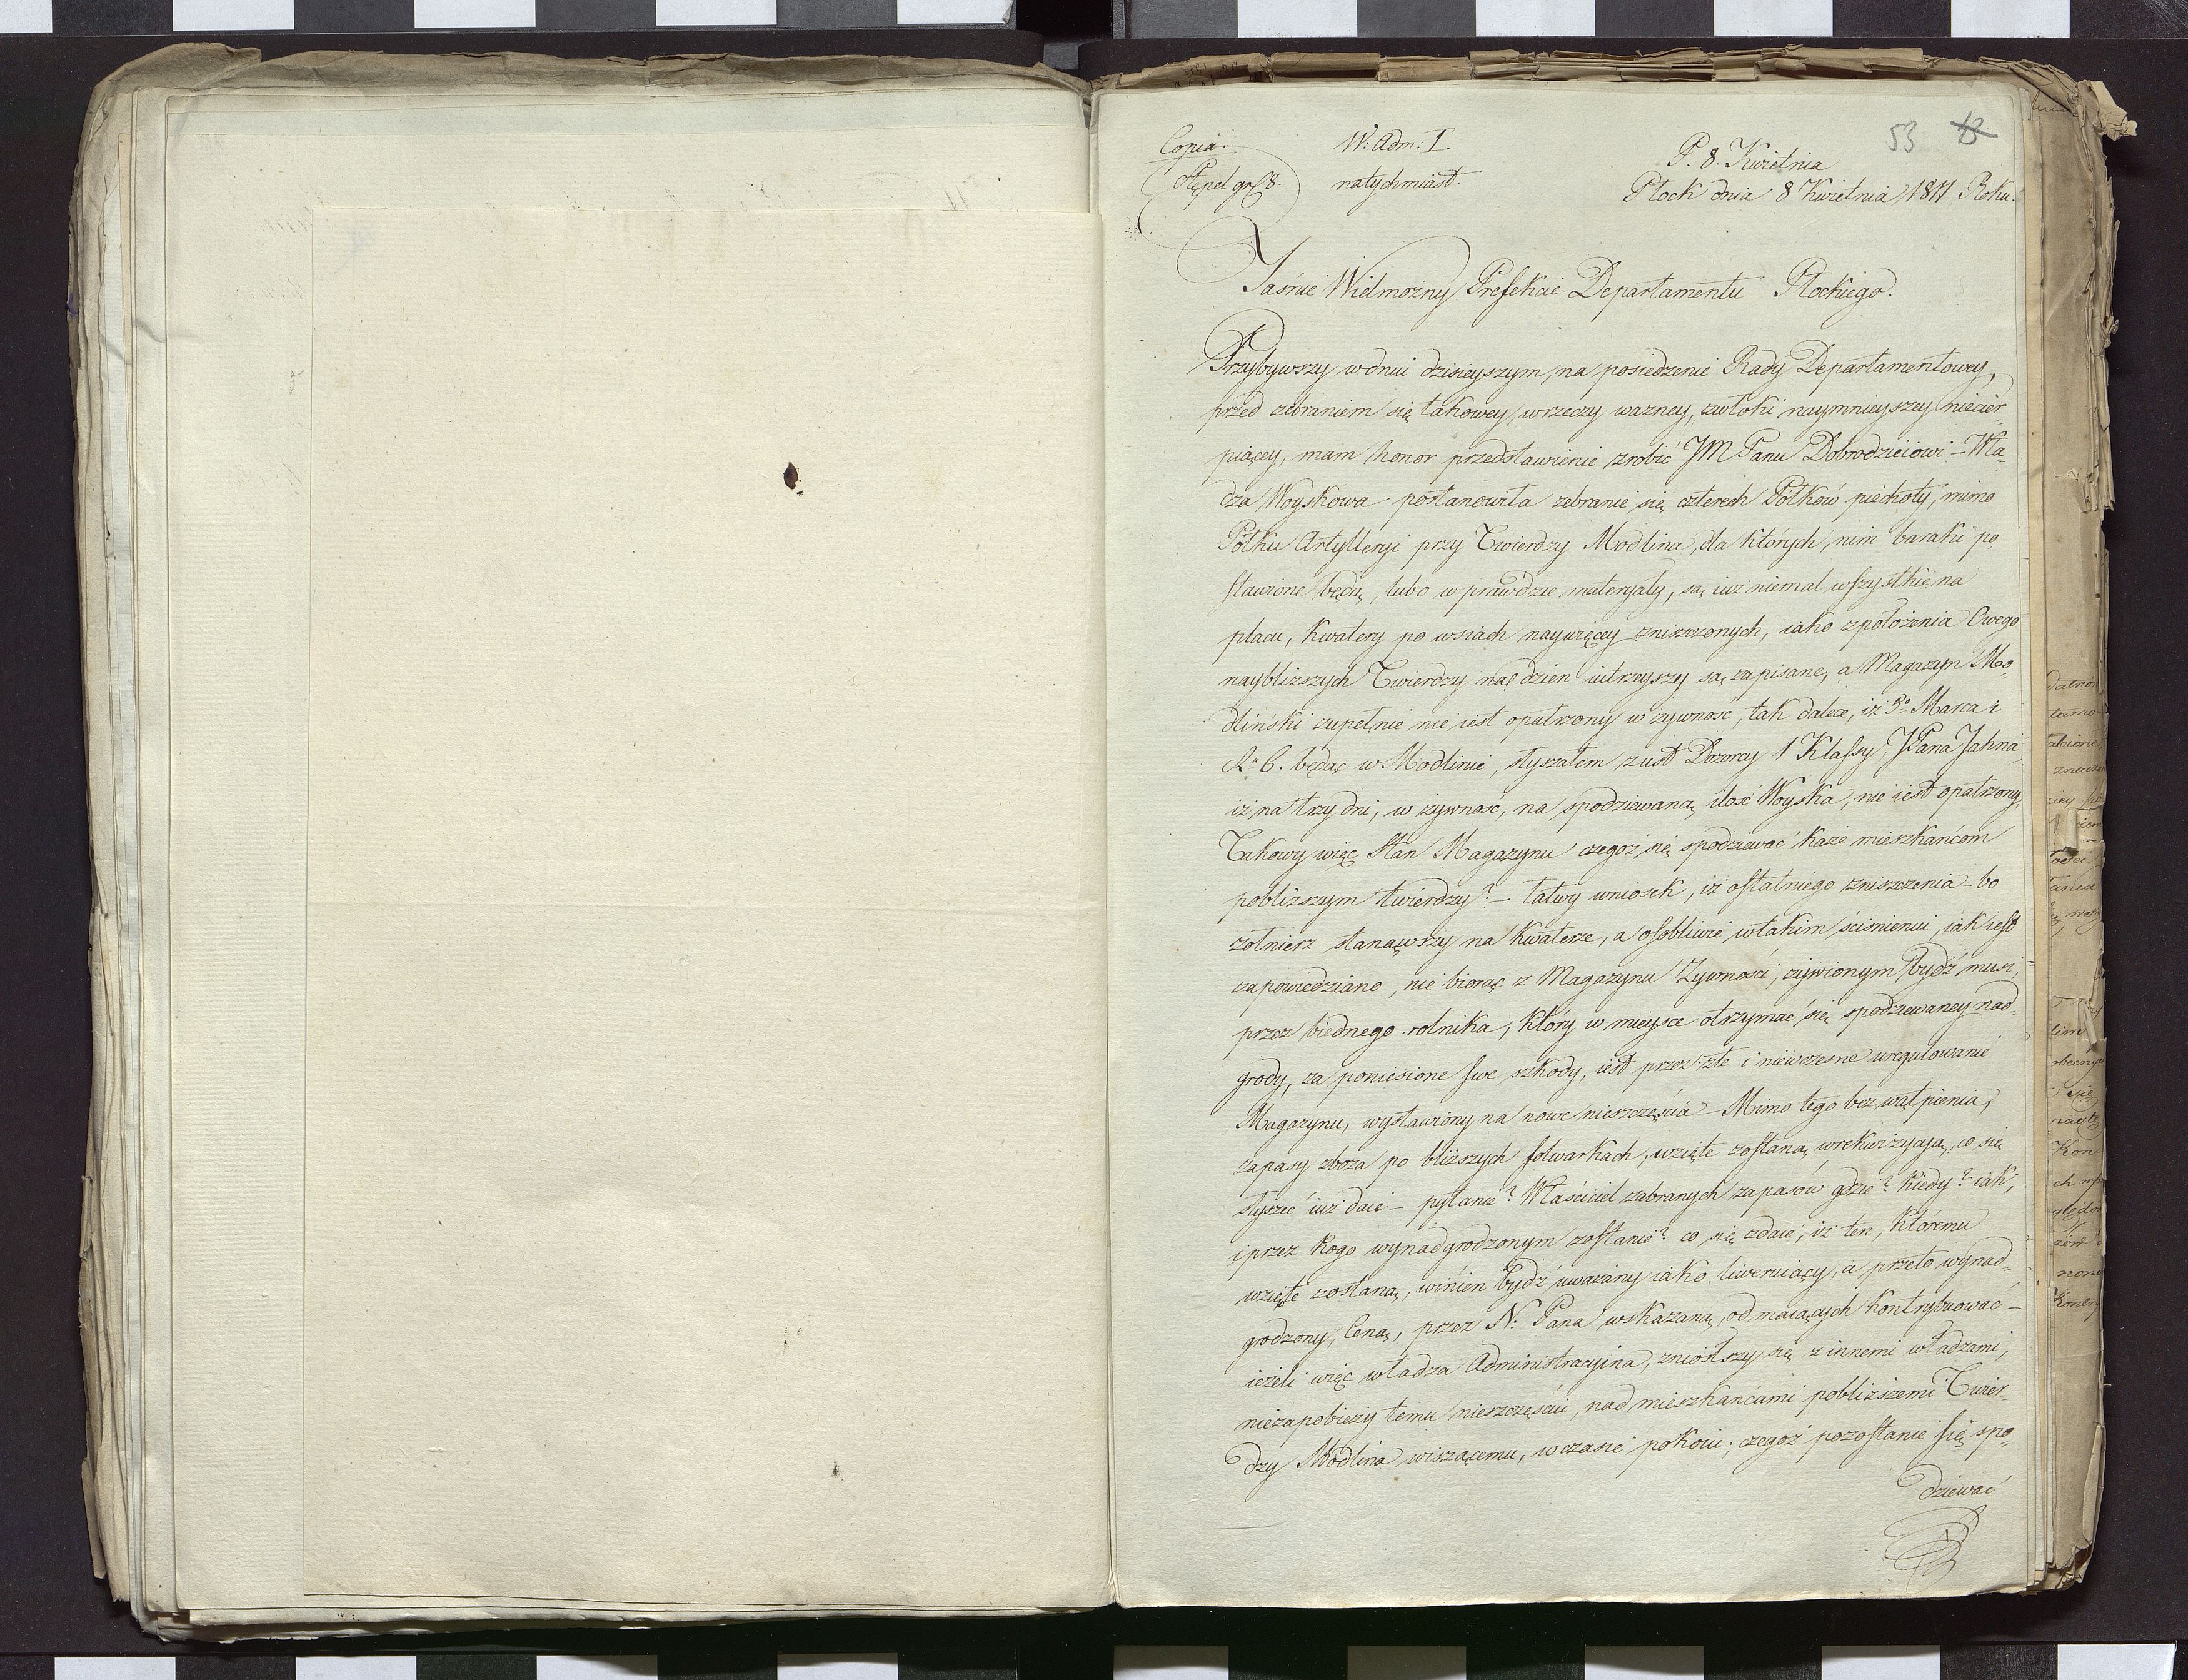 53
Copia.
W: Adm: I.
P. 8. Kwietnia
Stępel gr. 8.
natychmiast.
Płock dnia 8 Kwietnia 1811 Roku.
Jaśnie Wielmożny Prefekcie Departamentu Płockiego.
Przybywszy w dniu dzisieyszym, na posiedzenie Rady Departamentowey,
przed zebraniem się takowey, w rzeczy wazney, zwłoki naymnieyszey niecier-
piącey, mam honor przedstawienie zrobić JM Panu Dobrodzieiowi – Wła-
dza Woyskowa postanowiła zebranie się czterech Półków piechoty, mimo
Półku Artylleryi przy Twierdzy Modlina, dla których, nim baraki po-
stawione będą, lubo w prawdzie materyały, są iuż niemal wszystkie na
placu, Kwatery po wsiach naywięcey zniszczonych, iako z położenia Owego
naybliższych Twierdzy na dzień iutrzeyszy są zapisane, a Magazyn Mo-
dliński zupełnie nie iest opatrzony w zywnosc, tak dalece, iż Marca
R: b. będąc w Modlinie, słyszałem z ust Dozorcy 1 Klassy JPana Jahna,
iż na trzy dni, w żywność, na spodziewaną ilosć Woyska, nie iest opatrzony,
Takowy więc Stan Magazynu czegoż się spodziewać każe mieszkańcom
pobliższym twierdzy? – łatwy wniosek, iż ostatniego zniszczenia – bo
żołnierz stanąwszy na Kwaterze, a osobliwie w takim ściśnieniu, iak iest
zapowiedziano, nie biorąc z Magazynu Zywności, żywionym bydź musi,
przez biednego rolnika, który w mieysce otrzymać się spodziewaney nad-
grody, za poniesione swe szkody, iest przez złe i niewczesne uregulowanie
Magazynu, wystawiony na nowe nieszczęścia – Mimo tego bez wątpienia,
zapasy zboża po bliższych folwarkach, wzięte zostaną w rekwizycyą, co się
słyszeć iuż daie – pytanie? Właściciel zabranych zapasów gdzie? kiedy? iak,
i przez kogo wynadgrodzonym zostanie? co się zdaie, iż ten, któremu
wzięte zostaną, winien bydź uważany iako liweruiący, a przeto wynad-
grodzony, Ceną, przez N: Pana wskazaną, od maiących kontrybuować –
ieżeli więc władza Administracyina, zniósłszy się z innemi władzami,
niezapobieży temu nieszczęściu, nad mieszkańcami pobliższemi Twier-
dzy Modlina wiszącemu, w czasie pokoiu; czegoż pozostanie się spo-
dziewać